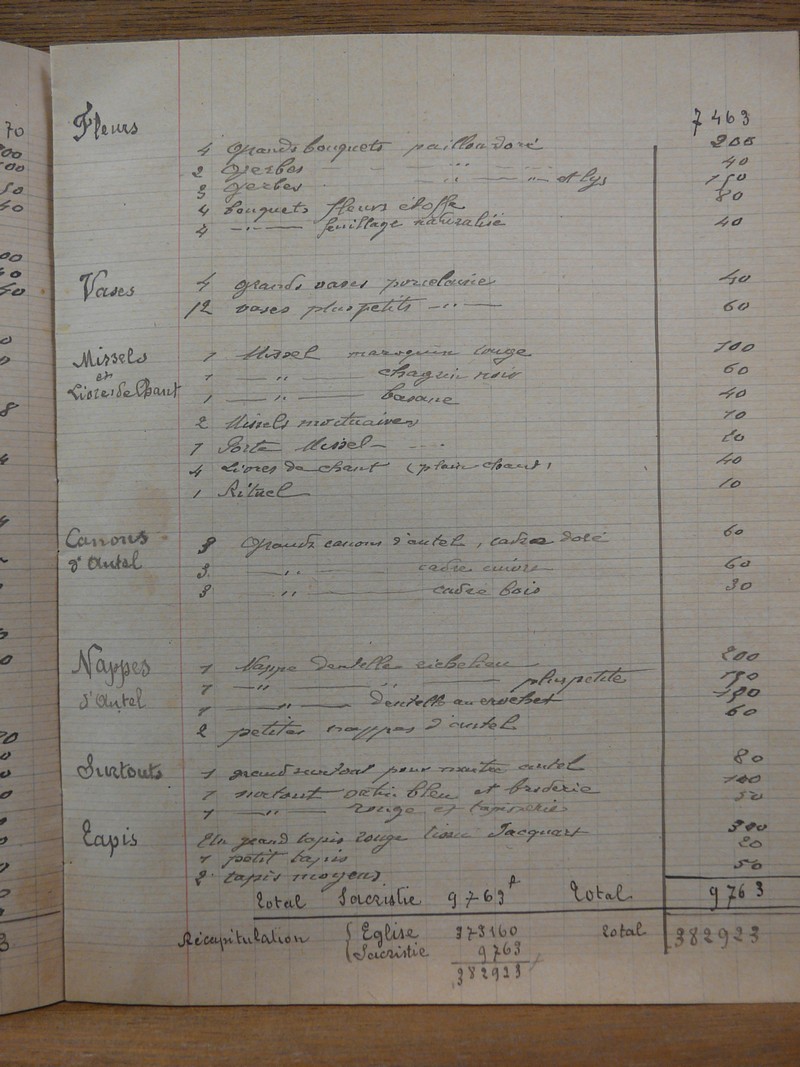 Fleurs 7463
4 grands bouquets paillon doré 200
2 gerbes — — — " 40
3 gerbes — " — " — et lys 150
4 bouquets fleurs étoffe 80
4 — " — feuillage naturalisé 40
Vases 4 grands vases porcelaine 40
12 vases plus petits — " — 60
Missels 1 Missel maroquin rouge 100
et 1 — " — chagrin noir 60
Livres de Chant 1 — " — basane 40
2 Missels mortuaires 10
1 Porte Missel 20
4 Livres de chant (plain chant) 40
1 Rituel 10
Canons 3 Grands canons d'autel, cadre doré 60
d'Autel 3 — " — cadre cuivre 60
3 " — cadre bois 30
Nappes 1 Nappe dentelle richelieu 200
1 — " — " — plus petite 150
d'Autel 1 — " — dentelle au crochet 150
2 petites nappes d'autel 60
Surtouts 1 grand surtout pour maître autel 80
1 surtout satin bleu et broderie 100
1 — " — rouge et tapisserie 50
Tapis Un grand tapis rouge tissu Jacquart 300
1 petit tapis 20
2 tapis moyens 50
Total Sacristie 9763f Total 9763
Récapitulation { Eglise 373160 total 382923
Sacristie 9763
382923
70